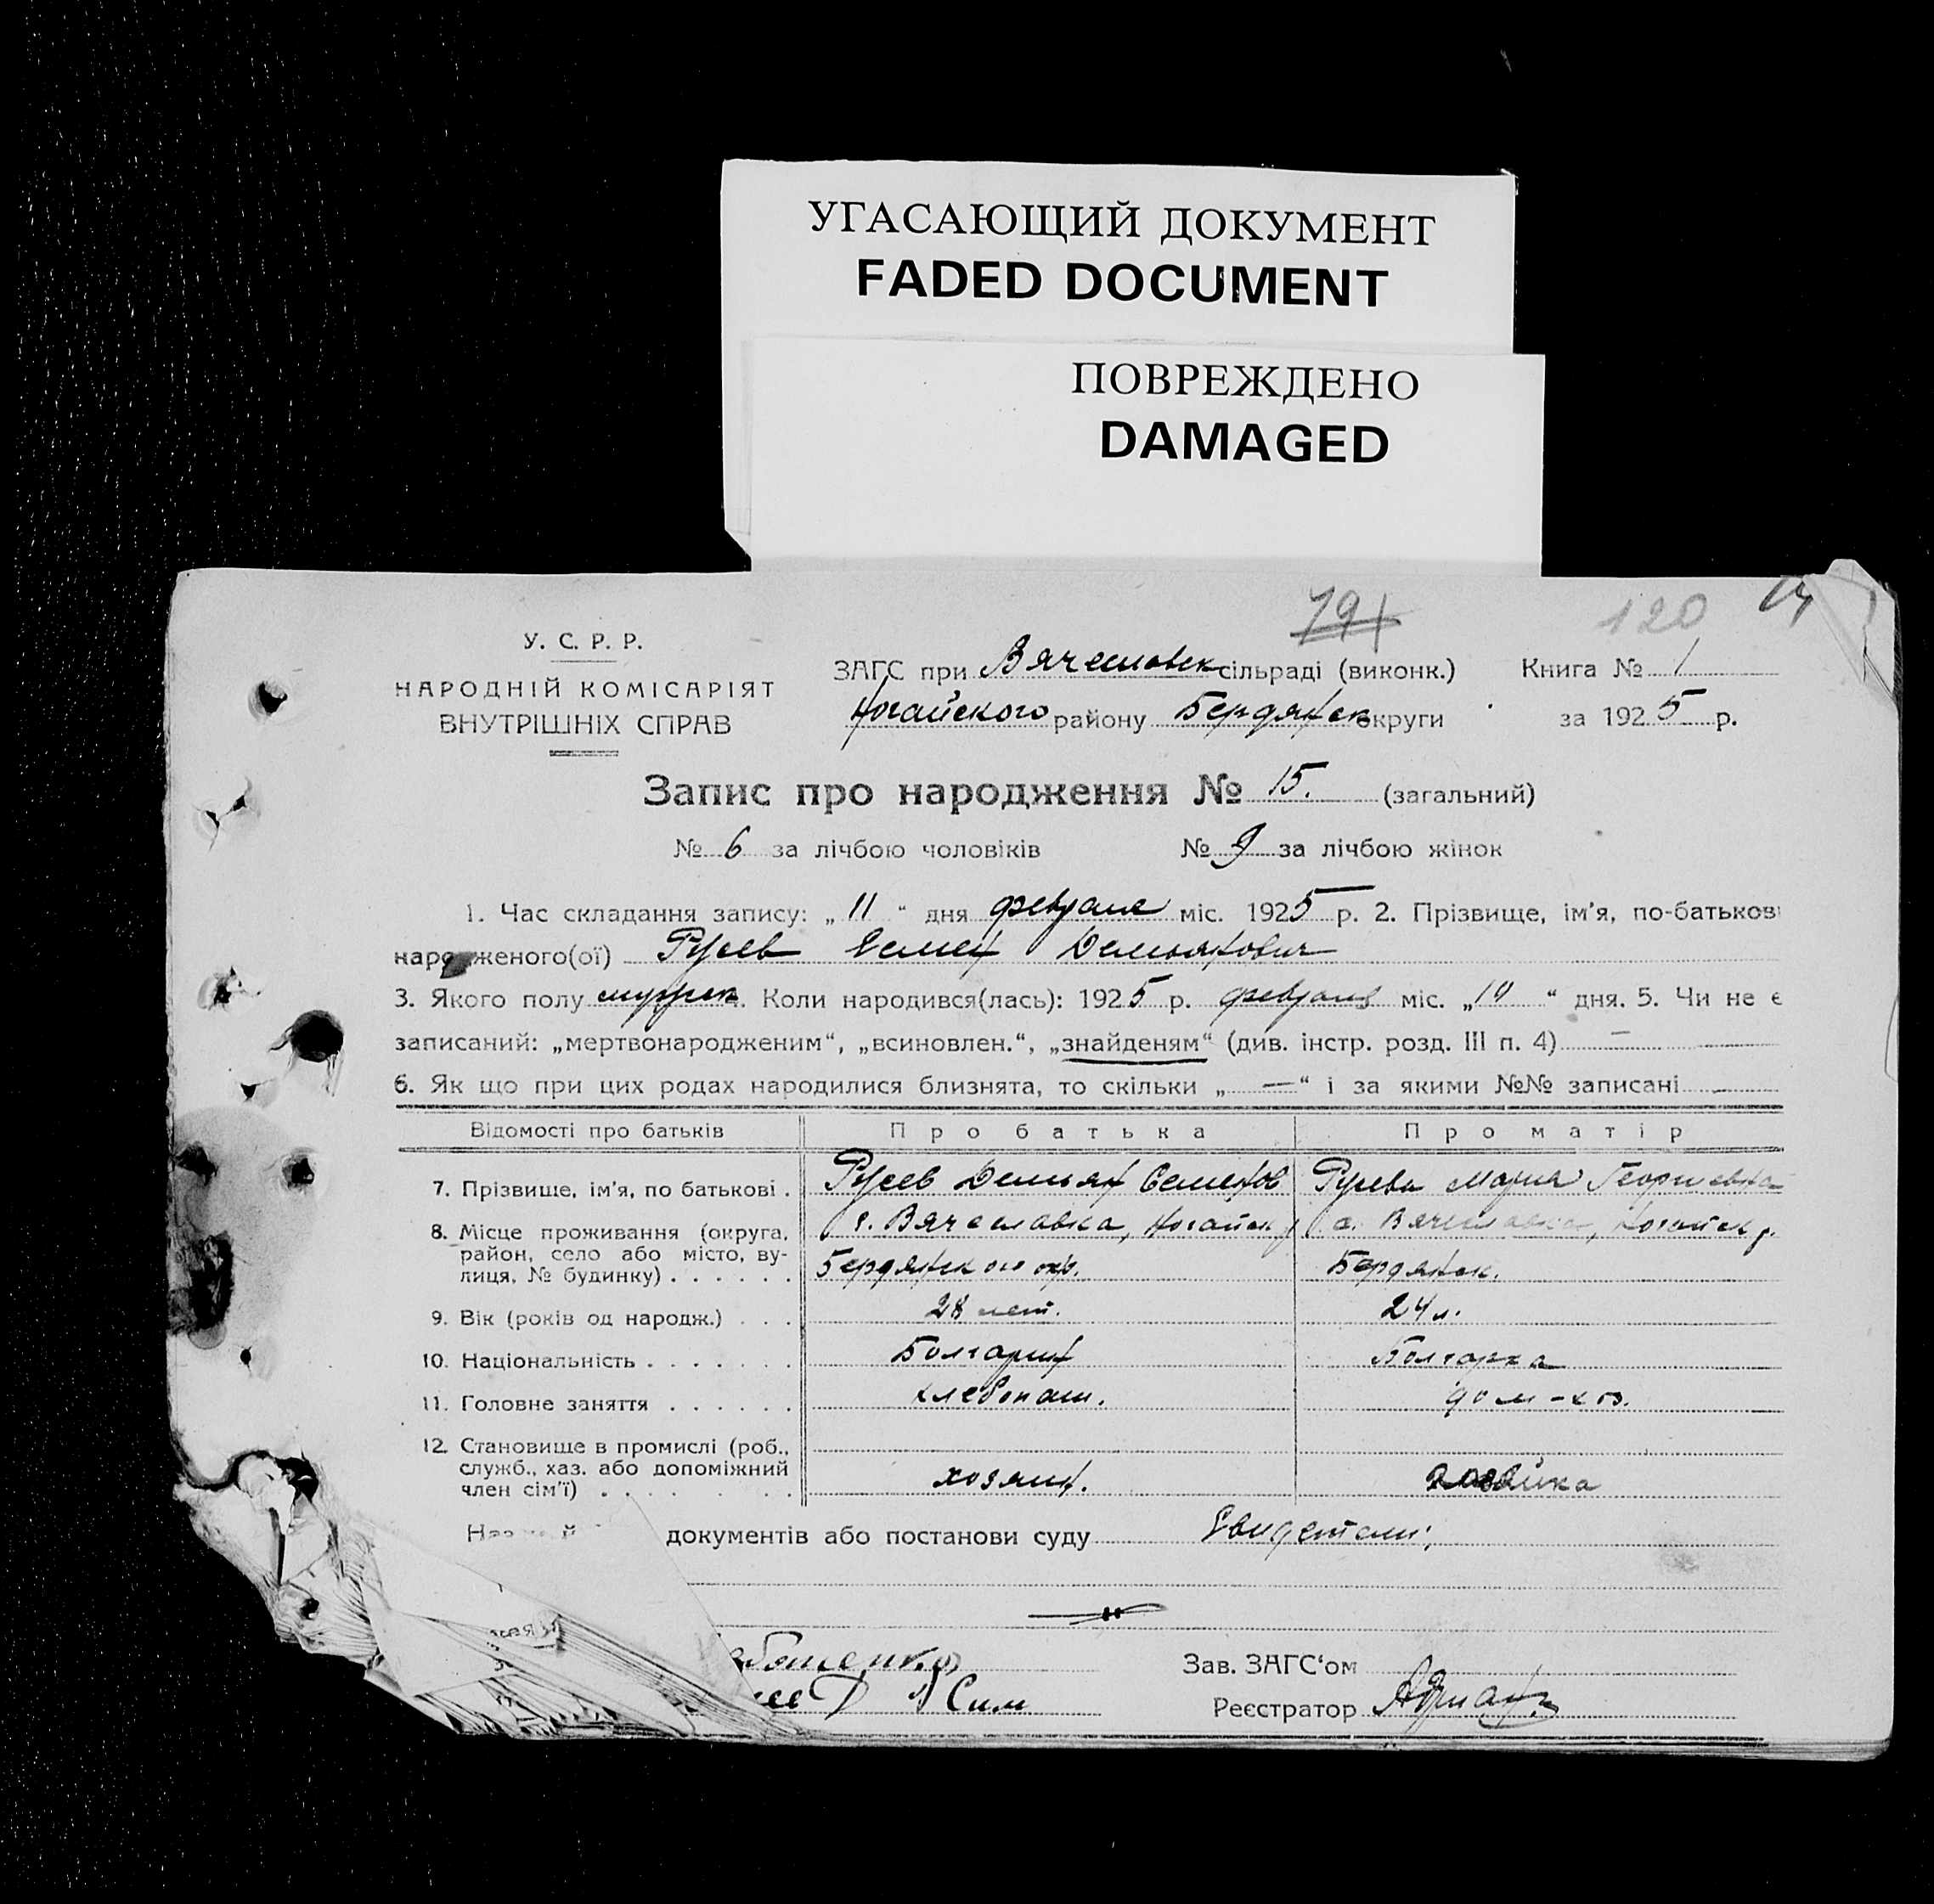 УГАСАЮЩИЙ ДОКУМЕНТ
FADED DOCUMENT
ПОВРЕЖДЕНО
DAMAGED
791 120
У. С. Р. Р.
НАРОДНІЙ КОМІСАРІЯТ
ВНУТРІШНІХ СПРАВ
ЗАГС при Вячеславск сільраді (виконк.) Книга № 1
Ногайского району Бердянск округи за 1925 р.
Запис про народження № 15. (загальний)
№ 6 за лічбою чоловіків № 9 за лічбою жінок
1. Час складання запису: „ 11 “ дня февраля міс. 1925 р. 2. Прізвище, ім‘я, по-батькові
народженого(ої) Русев Семен Демьянович
3. Якого полу мужск 4. Коли народився(лась): 1925 р. февраля міс. „10“ дня. 5. Чи не є
записаний: „мертвонародженим“, „всиновлен.“, „знайденям“ (див. інстр. розд. III п. 4) —
6. Як що при цих родах народилися близнята, то скільки „ — “ і за якими №№ записані
Відомості про батьків Про батька Про матір
7. Прізвище, ім‘я, по батькові . Русев Демьян Семенов Русева Мария Георгиевна
8. Місце проживання (округа, с. Вячеславка, Ногайск р с. Вячеславка, Ногайск р.
район, село або місто, ву-
лиця, № будинку) . . . . . . Бердянского окр. Бердянск.
9. Вік (років од народж.) . . . 28 лет. 24 л.
10. Національність . . . . . . . Болгарин Болгарка
11. Головне заняття . . . . . . хлебопаш. дом-хоз.
12. Становище в промислі (роб.,
служб., хаз. або допоміжний
член сім‘ї) . . . . . хозяин. хозяйка
документів або постанови суду Свидетели:
Зав. ЗАГС‘ом
Сим
Реєстратор